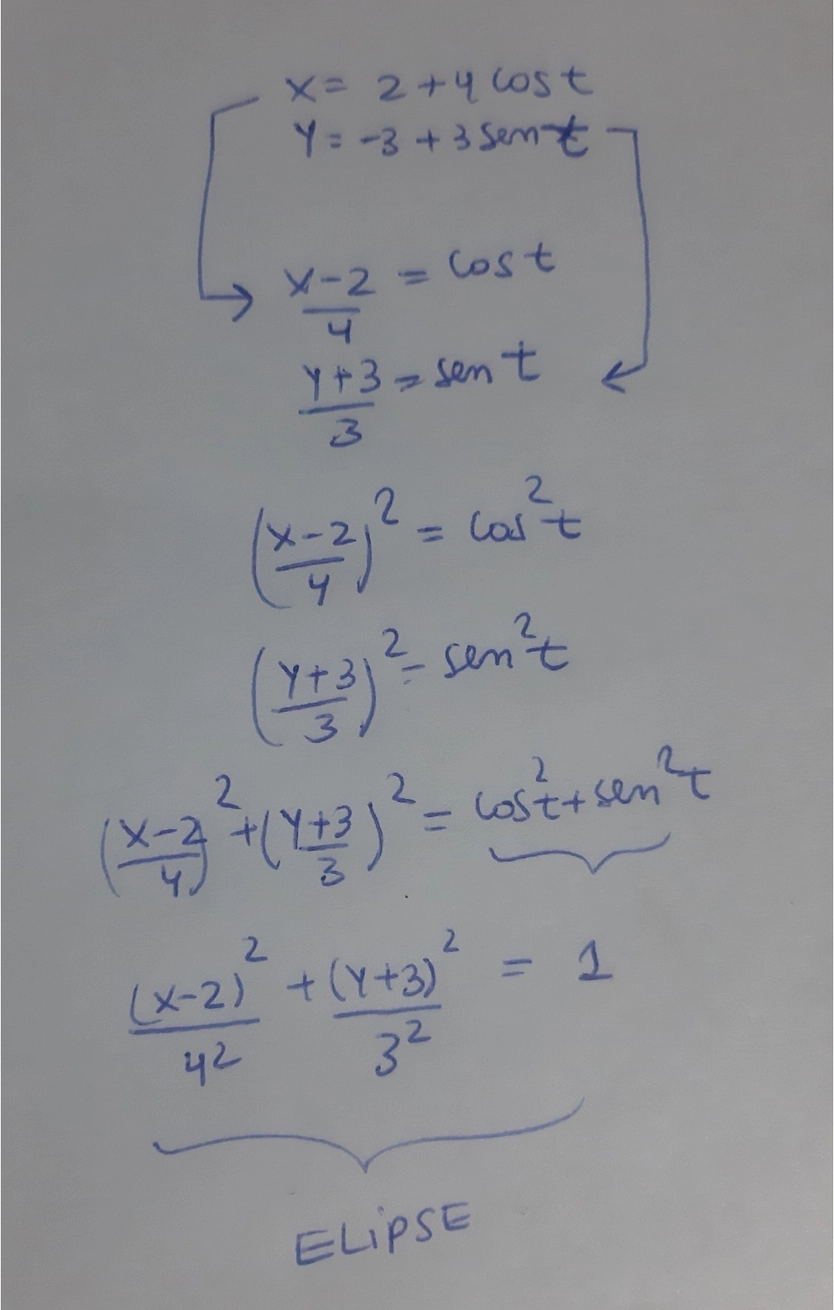 x = 2 + 4 cos t
y = -3 + 3 sen t
(x-2)/4 = cos t
(y+3)/3 = sen t
((x-2)/4)² = cos² t
((y+3)/3)² = sen² t
((x-2)/4)² + ((y+3)/3)² = cos² t + sen² t
(x-2)²/4² + (y+3)²/3² = 1
ELiPSE